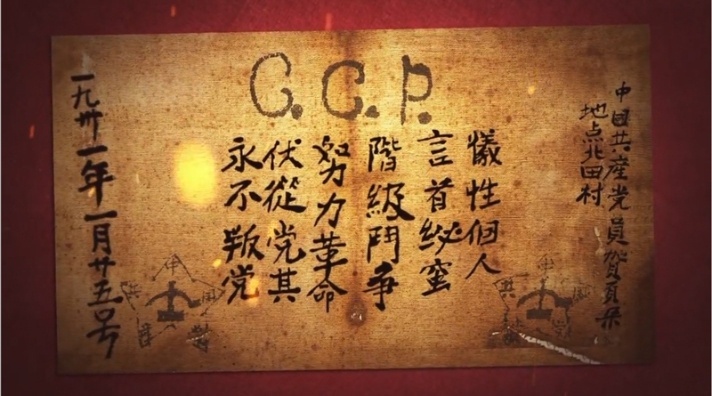 C.C.P.
中國共產党員賀頁朵
地点北田村
犧牲個人
言首秘蜜
階級鬥争
努力革命
伏從党其
永不叛党
一九卅一年一月廿五号